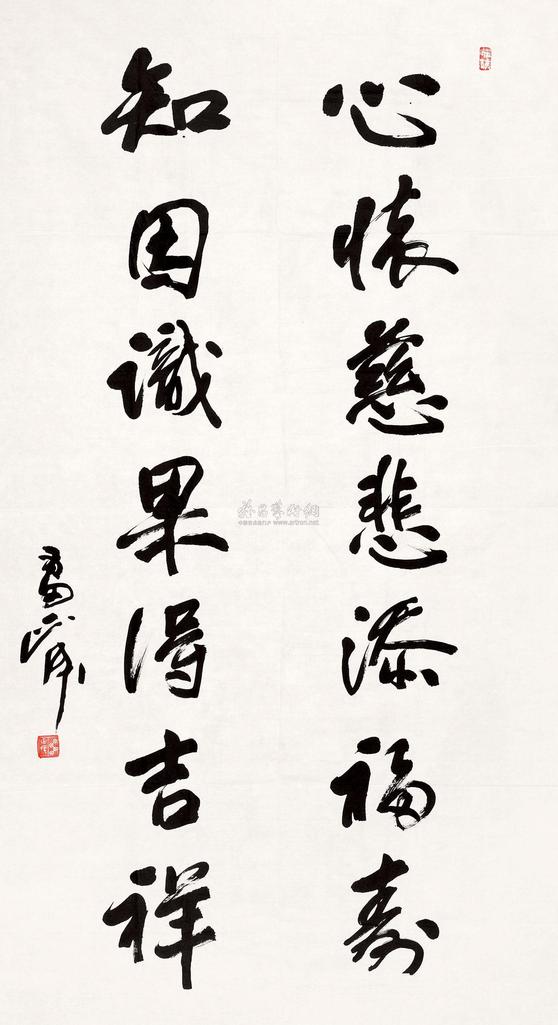 心懷慈悲添福壽
知因識果得吉祥
雅昌藝術網
www.artron.net